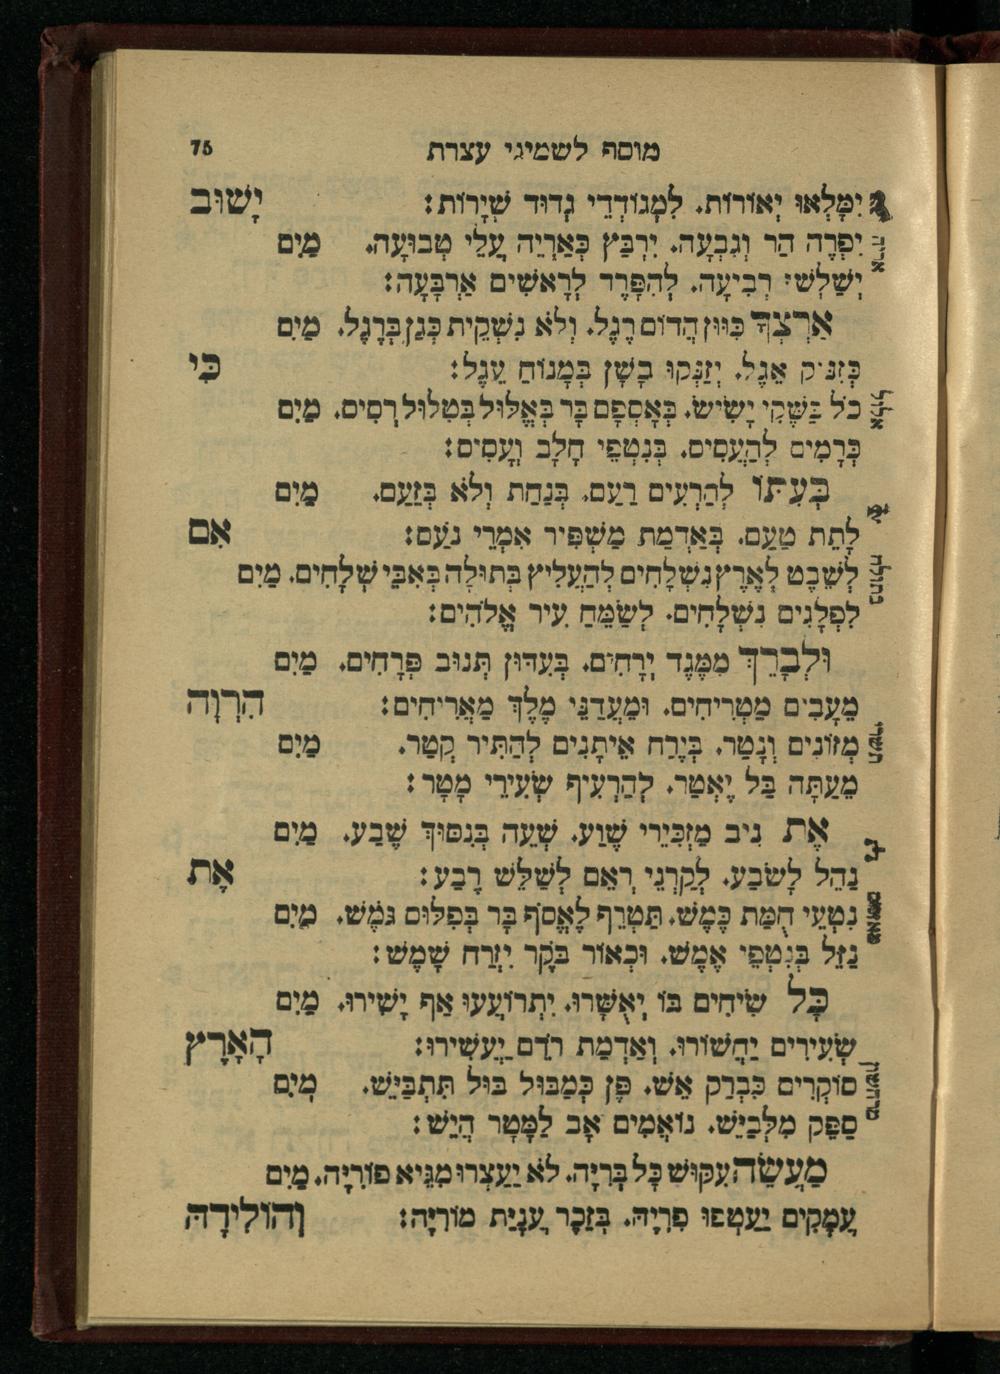 מוסף לשמיני עצרת 75
יִמָּלְאוּ יְאוֹרוֹת. לִמְגוֹדְדֵי גְדוּד שִׁירוֹת: יָשׁוּב
אריה יִפְרֶה הַר וְגִבְעָה. יִרְבַּץ כְּאַרְיֵה עֲלֵי טְבוּעָה. מַיִם
יְשַׁלֵּשׁ רְבִיעָה. לְהִפָּרֵד לְרָאשִׁים אַרְבָּעָה:
אַרְצְךָ כִּוּוּן הֲדוֹם רֶגֶל. וְלֹא נִשְׁקֵית כְּגַן בְּרֶגֶל. מַיִם
כְּזִנּוּק אֵגֶל. יְזַנְּקוּ בָשָׁן בְּמָנוֹחַ עֵגֶל: כִּי
אלול כֹל בַּשֶּׁקִי יָשִׂישׂ. בְּאָסְפָם בָּר בֶּאֱלוּל בְּטִלּוּל רְסִים. מַיִם
כְּרָמִים לְהַעֲסִים. בְּנִטְפֵי חָלָב וְעָסִים:
בְּעִתּוֹ לְהַרְעִים רַעַם. בְּנַחַת וְלֹא בְּזַעַם. מַיִם
לָתֵת טַעַם. בְּאַדְמַת מַשְׁפִּיר אִמְרֵי נֹעַם: אִם
בתולה לְשֵׁבֶט לָאָרֶץ נִשְׁלָחִים לְהַעֲלִיץ בְּתוּלָה בְּאִבֵּי שְׁלָחִים. מַיִם
לִפְלָגִים נִשְׁלָחִים. לְשַׂמֵּחַ עִיר אֱלֹהִים:
וּלְבָרֵךְ מִמֶּגֶד יְרָחִים. בְּעִדּוּן תְּנוּב פְּרָחִים. מַיִם
מֵעָבִים מַטְרִיחִים. וּמַעֲדַנֵּי מֶלֶךְ מַאֲרִיחִים: הִרְוָה
תשרי מְזוֹנִים וְנָטַר. בְּיֶרַח אֵיתָנִים לְהַתִּיר קְטַר. מַיִם
מֵעַתָּה בַּל יֶאְטַר. לְהַרְעִיף שְׂעִירֵי מָטָר:
אֶת נִיב מַזְכִּירֵי שֶׁוַע. שְׁעֵה בְּנִסּוּךְ שֶׁבַע. מַיִם
נַהֵל לָשׂבַע. לְקַרְנֵי רְאֵם לְשַׁלֵּשׁ רֶבַע: אֶת
מאזנים נִטְעֵי חֻמַּת כֶּמֶשׁ. תַּטְרֵף לֶאֱסֹף בָּר בְּפִלּוּם גּמֶשׁ. מַיִם
נַזֵּל בְּנִטְפֵי אֶמֶשׁ. וּכְאוֹר בֹּקֶר יִזְרַח שָׁמֶשׁ:
כָּל שִׂיחִים בּוֹ יְאֻשָּׁרוּ. יִתְרוֹעֲעוּ אַף יָשִׁירוּ. מַיִם
שְׂעִירִים יַחֲשׁוֹרוּ. וְאַדְמַת רֹדֵם יַעֲשִׁירוּ: הָאָרֶץ
מרחשון סוֹקְרִים כִּבְרַק אֵשׁ. פֶּן כְּמַבּוּל בּוּל תִּתְבַּיֵּשׁ. מַיִם
סַפֵּק מִלְּבַיֵּשׁ. נוֹאֲמִים אָב לַמָּטָר הֲיֵשׁ:
מַעֲשֵׂה עִקּוּשׁ כָּל בְּרִיָּה. לֹא יַעַצְרוּ מִגֵּיא פּוֹרִיָּה. מַיִם
עֲמָקִים יַעַטְפוּ פִרְיָהּ. בְּזֵכֶר עֲנָיַת מוֹרִיָּה: וְהוֹלִידָהּ